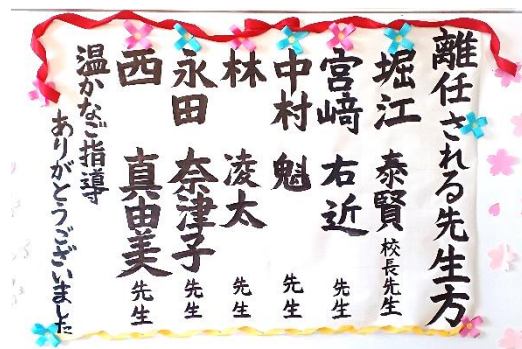 離任される先生方
堀江 泰賢 校長先生
宮﨑 右近 先生
中村 魁 先生
林 凌太 先生
永田 奈津子 先生
西 真由美 先生
温かなご指導
ありがとうございました